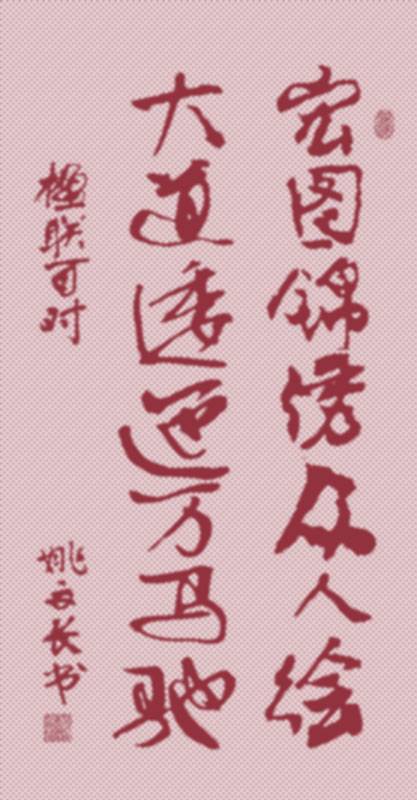 宏图锦绣众人绘
大道逶迤万马驰
楹联百对
姚文长书